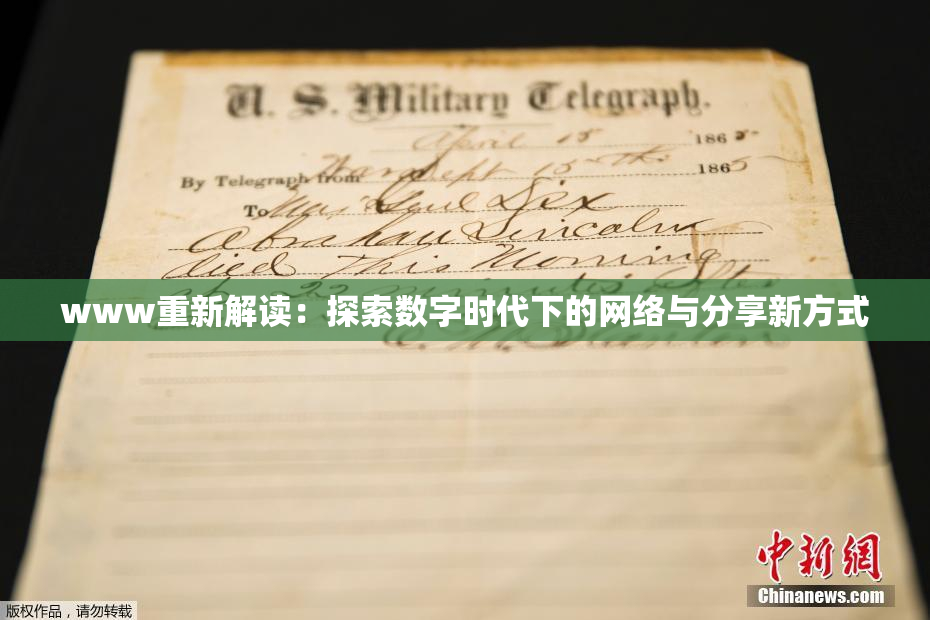 U. S. Military Telegraph.
April 15 1865
By Telegraph from War Dept 15th 1865
To Maj Genl Dix
Abraham Lincoln
died This Morning
at 22 minutes after
www重新解读：探索数字时代下的网络与分享新方式
E. M. Stanton
中新网
Chinanews.com
版权作品，请勿转载